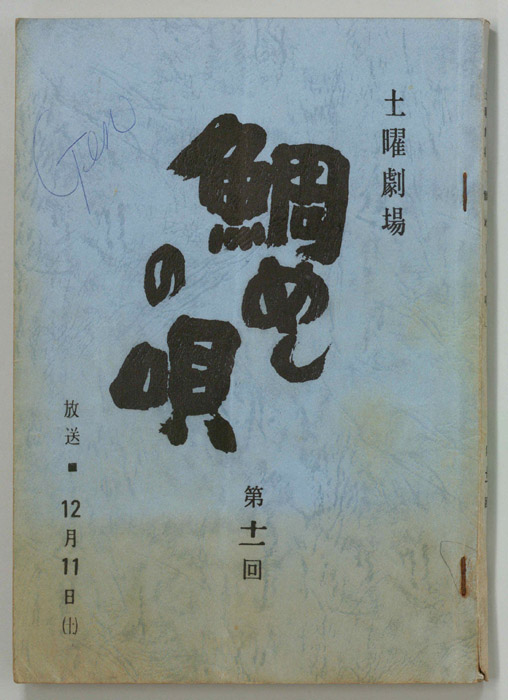 土曜劇場
鯛めし
の唄
第十一回
放送■12月11日(土)